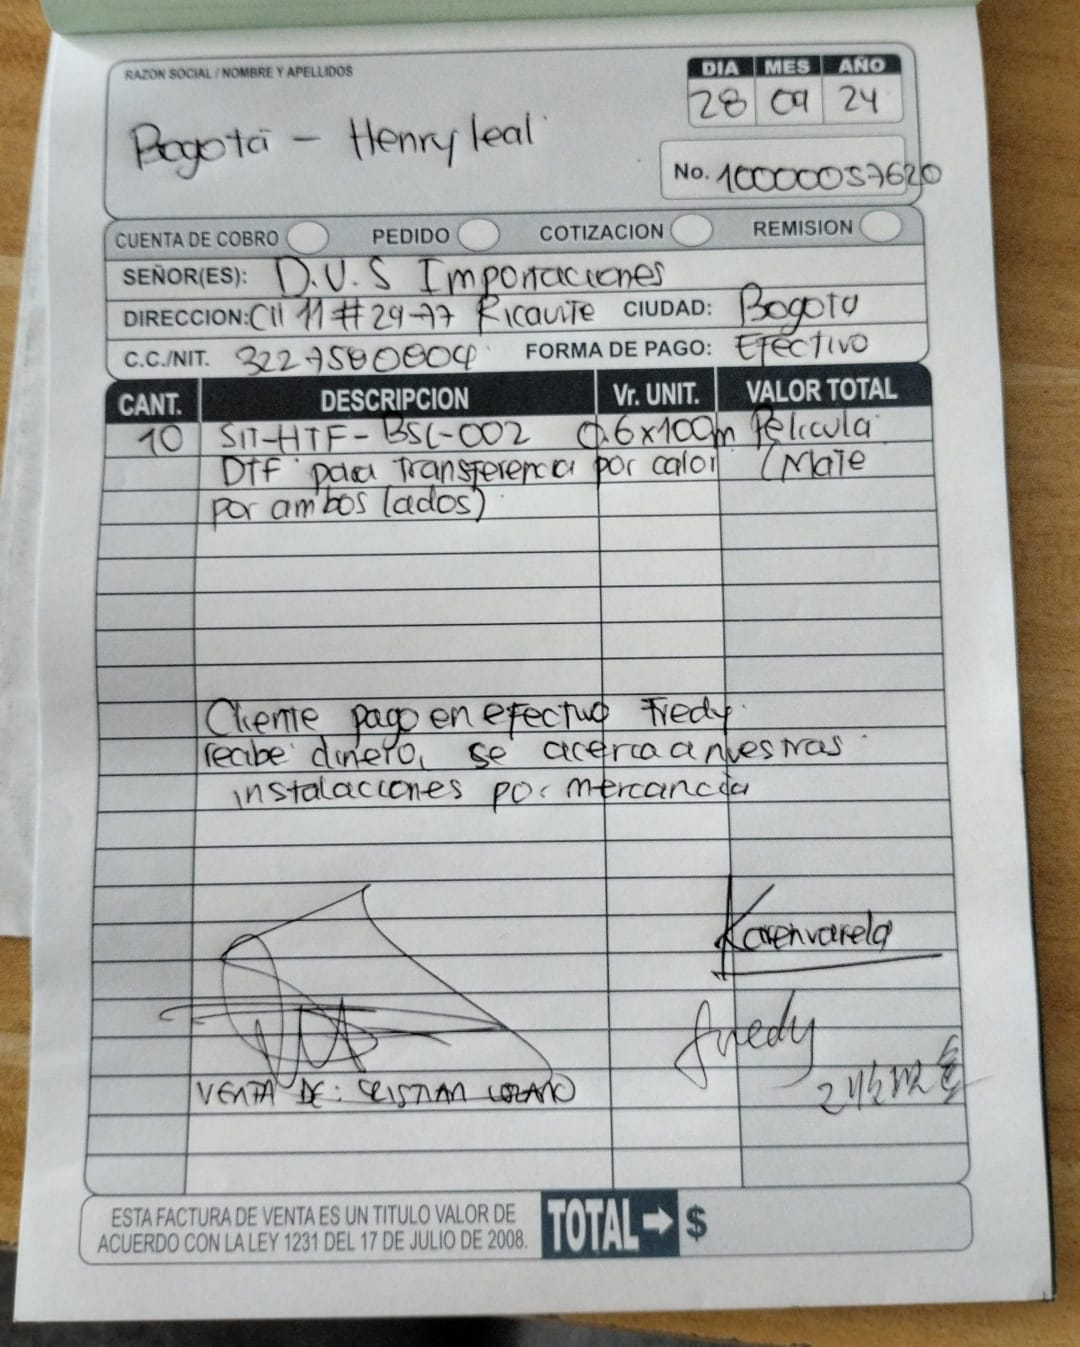 RAZON SOCIAL / NOMBRE Y APELLIDOS
DIA MES AÑO
28 09 24
Bogotá - Henry leal
No. 10000057620
CUENTA DE COBRO PEDIDO COTIZACION REMISION
SEÑOR(ES): D.V.S Importaciones
DIRECCION: Cll 11 # 29-77 Ricaurte CIUDAD: Bogota
C.C./NIT. 3227580804 FORMA DE PAGO: Efectivo
CANT. DESCRIPCION Vr. UNIT. VALOR TOTAL
10 SIT-HTF-BSC-002 0.6x100m Pelicula
DTF para transferencia por calor (Mate
por ambos lados)
Cliente pago en efectivo Fredy
recibe dinero, se acerca a nuestras
instalaciones por mercancia
Karenvarela
fredy
VENTA DE: CRISTIAN LOZANO
ESTA FACTURA DE VENTA ES UN TITULO VALOR DE
ACUERDO CON LA LEY 1231 DEL 17 DE JULIO DE 2008.
TOTAL → $